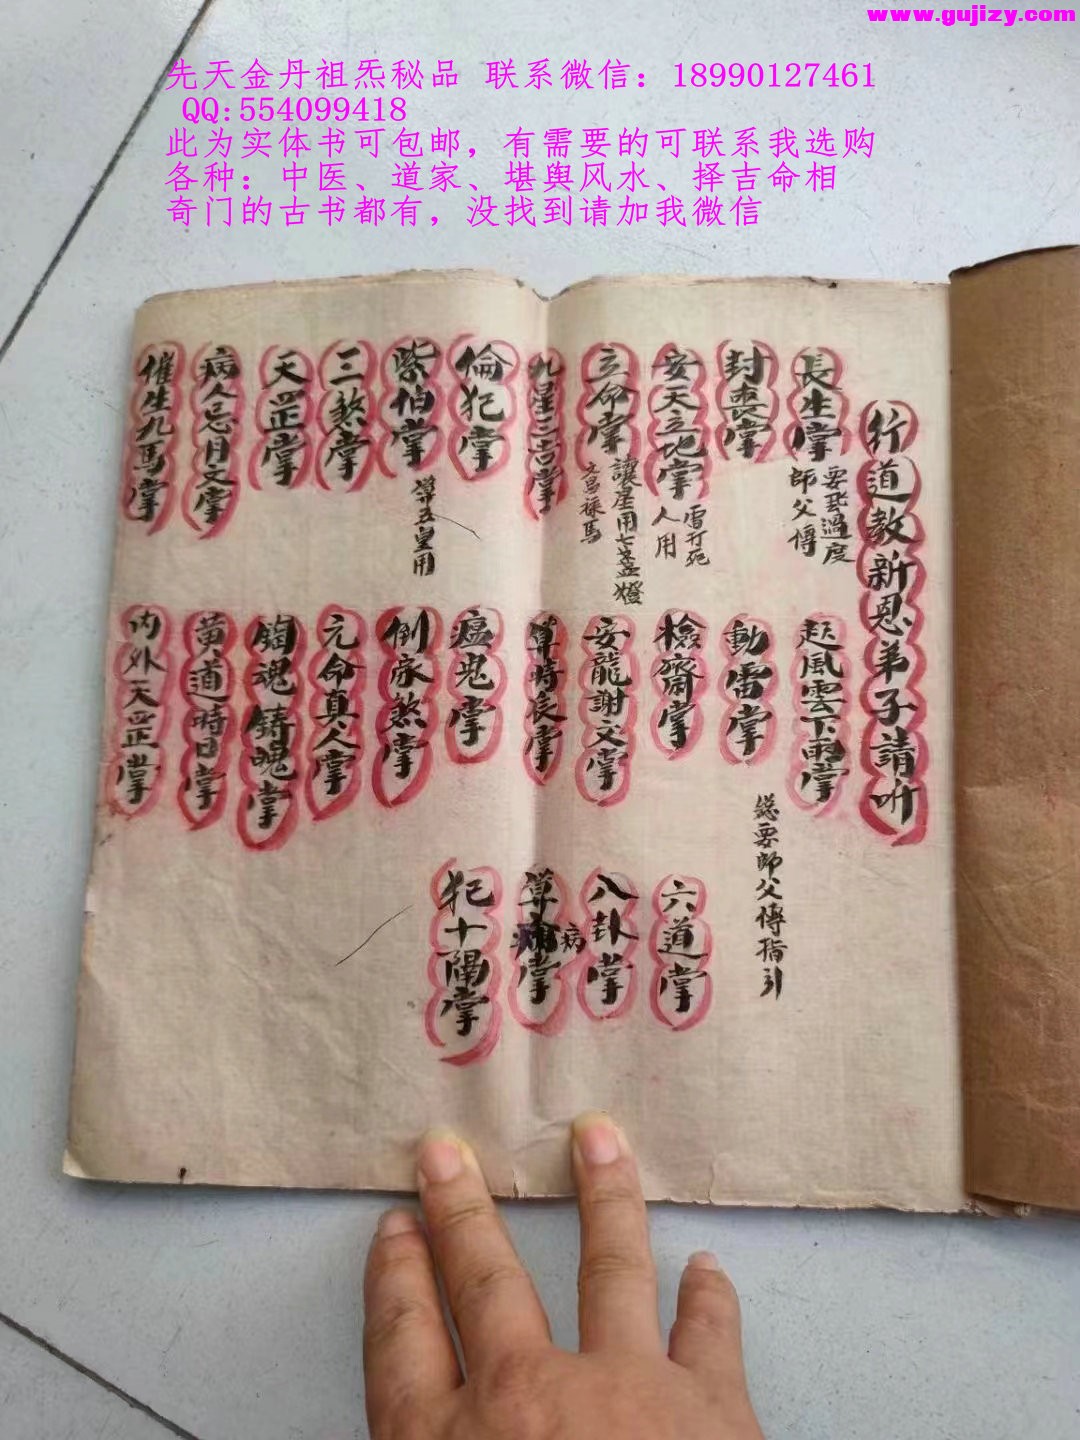 www.gujizy.com
先天金丹祖炁秘品 联系微信：18990127461
QQ:554099418
此为实体书可包邮，有需要的可联系我选购
各种：中医、道家、堪舆风水、择吉命相
奇门的古书都有，没找到请加我微信
行道教新恩弟子請听
長生掌
師父傳
封喪掌
安天立地掌
雷打死
人用
立命掌
讓星用七盞燈
文昌禄馬
九星三吉掌
倫犯掌
紫伯掌
算五皇用
三煞掌
天罡掌
病人忌月文掌
催生九馬掌
起風雲下雨掌
動雷掌
檢齋掌
安龍謝文掌
算時辰掌
瘟鬼掌
倒家煞掌
元命真人掌
黄道時日掌
内外天罡掌
總要師父傳指引
六道掌
八卦掌
算病掌
犯十隔掌